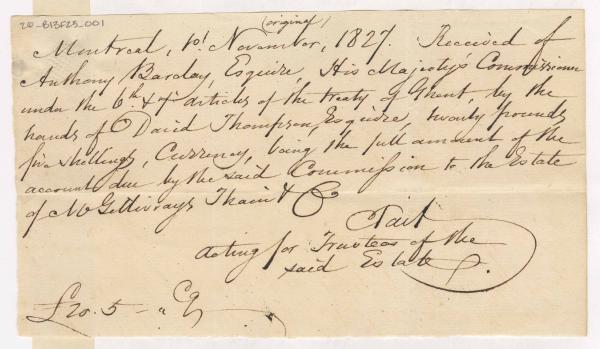 20-B13F25_001
(original)
Montreal, 10! November, 1827. Received of
Anthony Barclay, Esquire, His Majesty's Commissioner
under the 6th & 7th articles of the treaty of Ghent, by the
hands of David Thompson, Esquire, twenty pounds
five shillings, Currency, being the full amount of the
account due by the said Commission to the Estate
of McGillivrays Thain & Co
Tait
Acting for Trustees of the
said Estate.
£20. 5 - " Cy